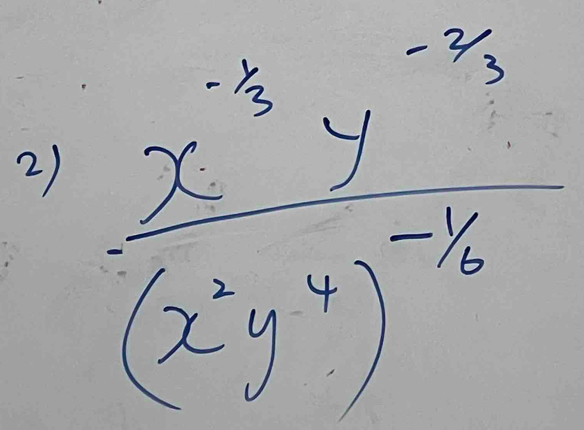 2) x^{-1/3} y^{-2/3}
(x^2 y^4)^{-1/6}